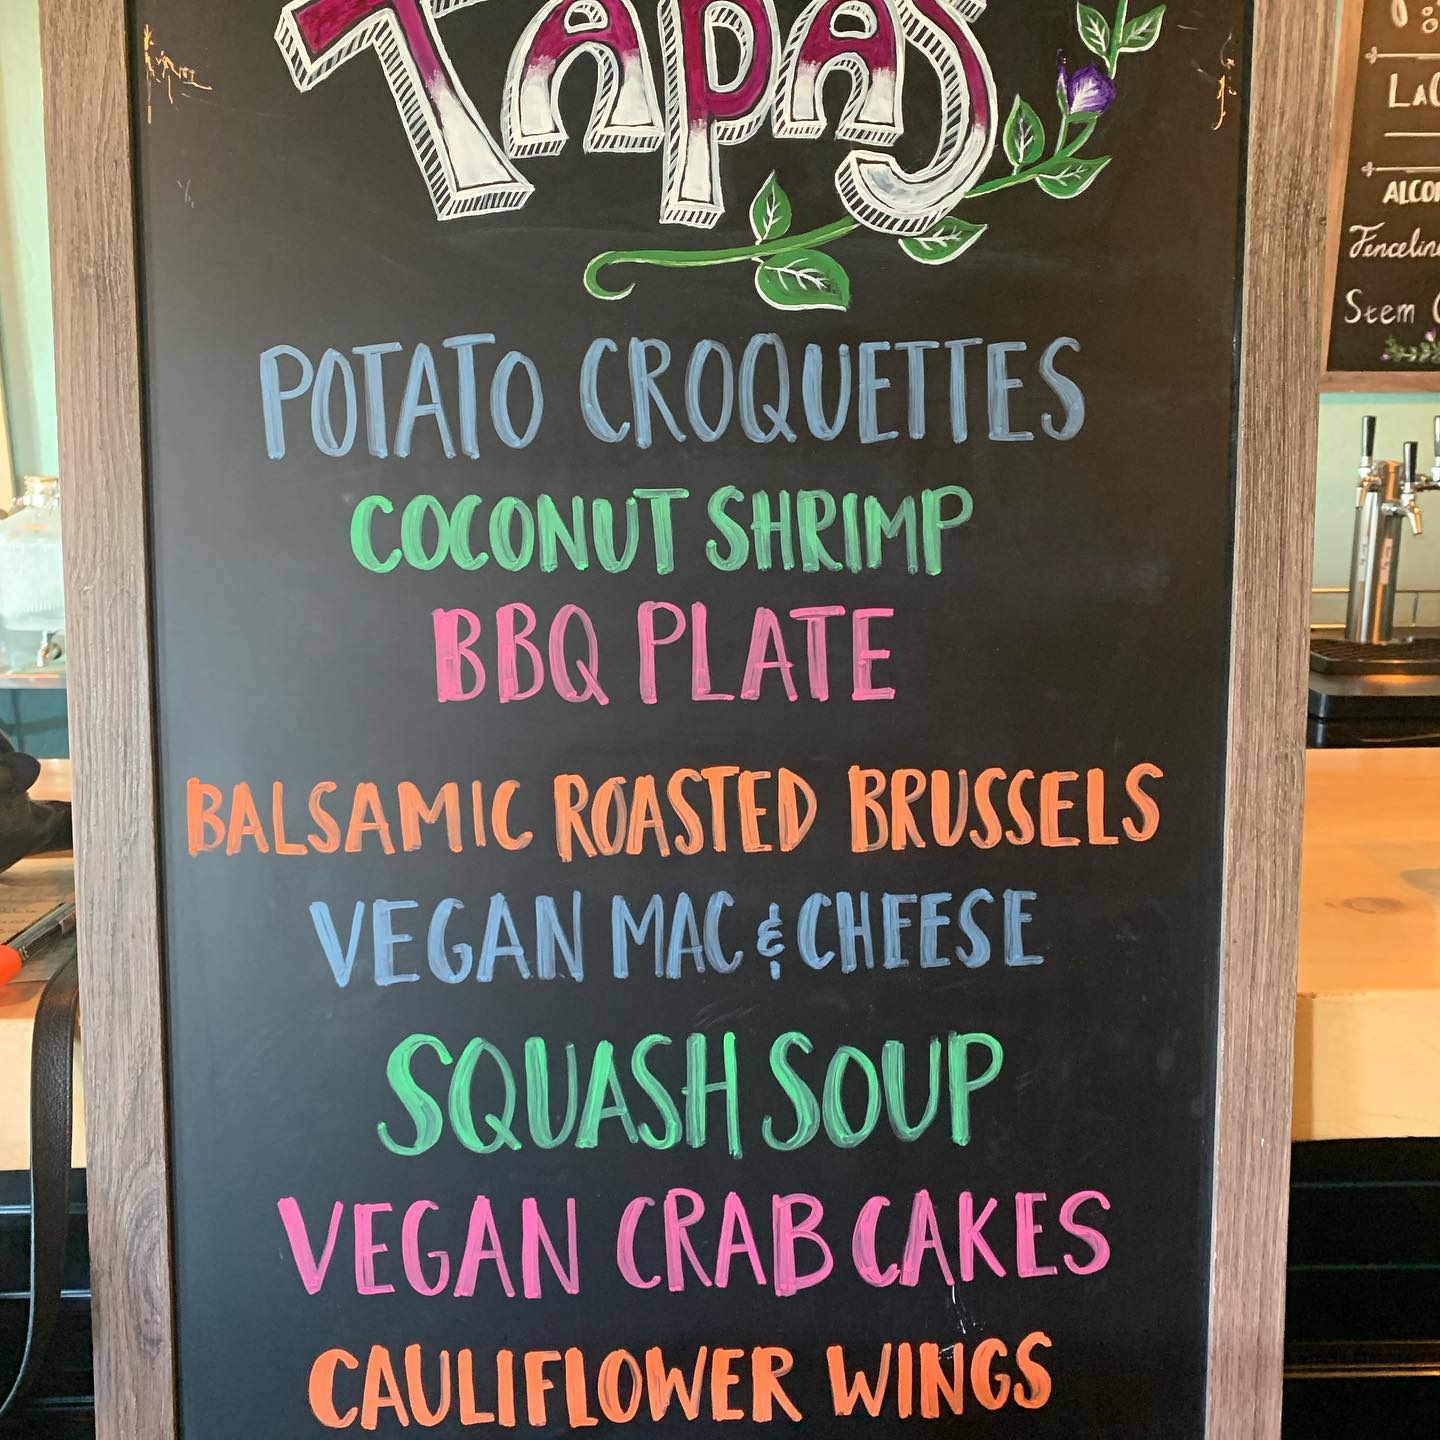 TAPAS
POTATO CROQUETTES
COCONUT SHRIMP
BBQ PLATE
BALSAMIC ROASTED BRUSSELS
VEGAN MAC & CHEESE
SQUASH SOUP
VEGAN CRAB CAKES
CAULIFLOWER WINGS
Stem